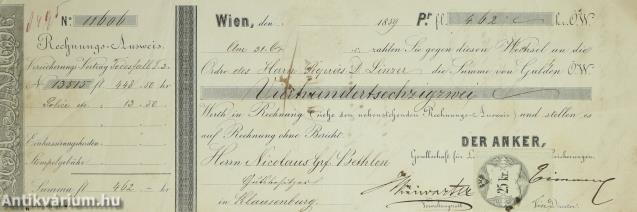 8495 N: 11606
Rechnungs-Ausweis.
Versicherungs Vertrag Todesfall
N 13515 fl 448.50 kr
Police etc " 13.50
Einkassierungskosten
Stempelgebühr
Summa fl 462 - kr
Wien, den 1859 Pr fl. 462 kr. Ö.W.
Am 31. zahlen Sie gegen diesen Wechsel an die
Ordre des Herrn Linzer die Summe von Gulden Ö.W.
Vierhundertsechzigzwei
Werth in Rechnung (siehe den nebenstehenden Rechnungs-Ausweis) und stellen es
auf Rechnung ohne Bericht.
DER ANKER,
Herrn Nicolaus Grf Bethlen
Gesellschaft für
Gutsbesitzer
in Klausenburg.
25 kr.
Antikvárium.hu